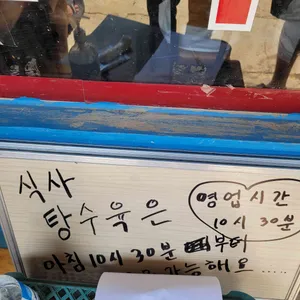 식사
탕수육은
영업시간
10시 30분
아침 10시 30분 부터
가능해요.....